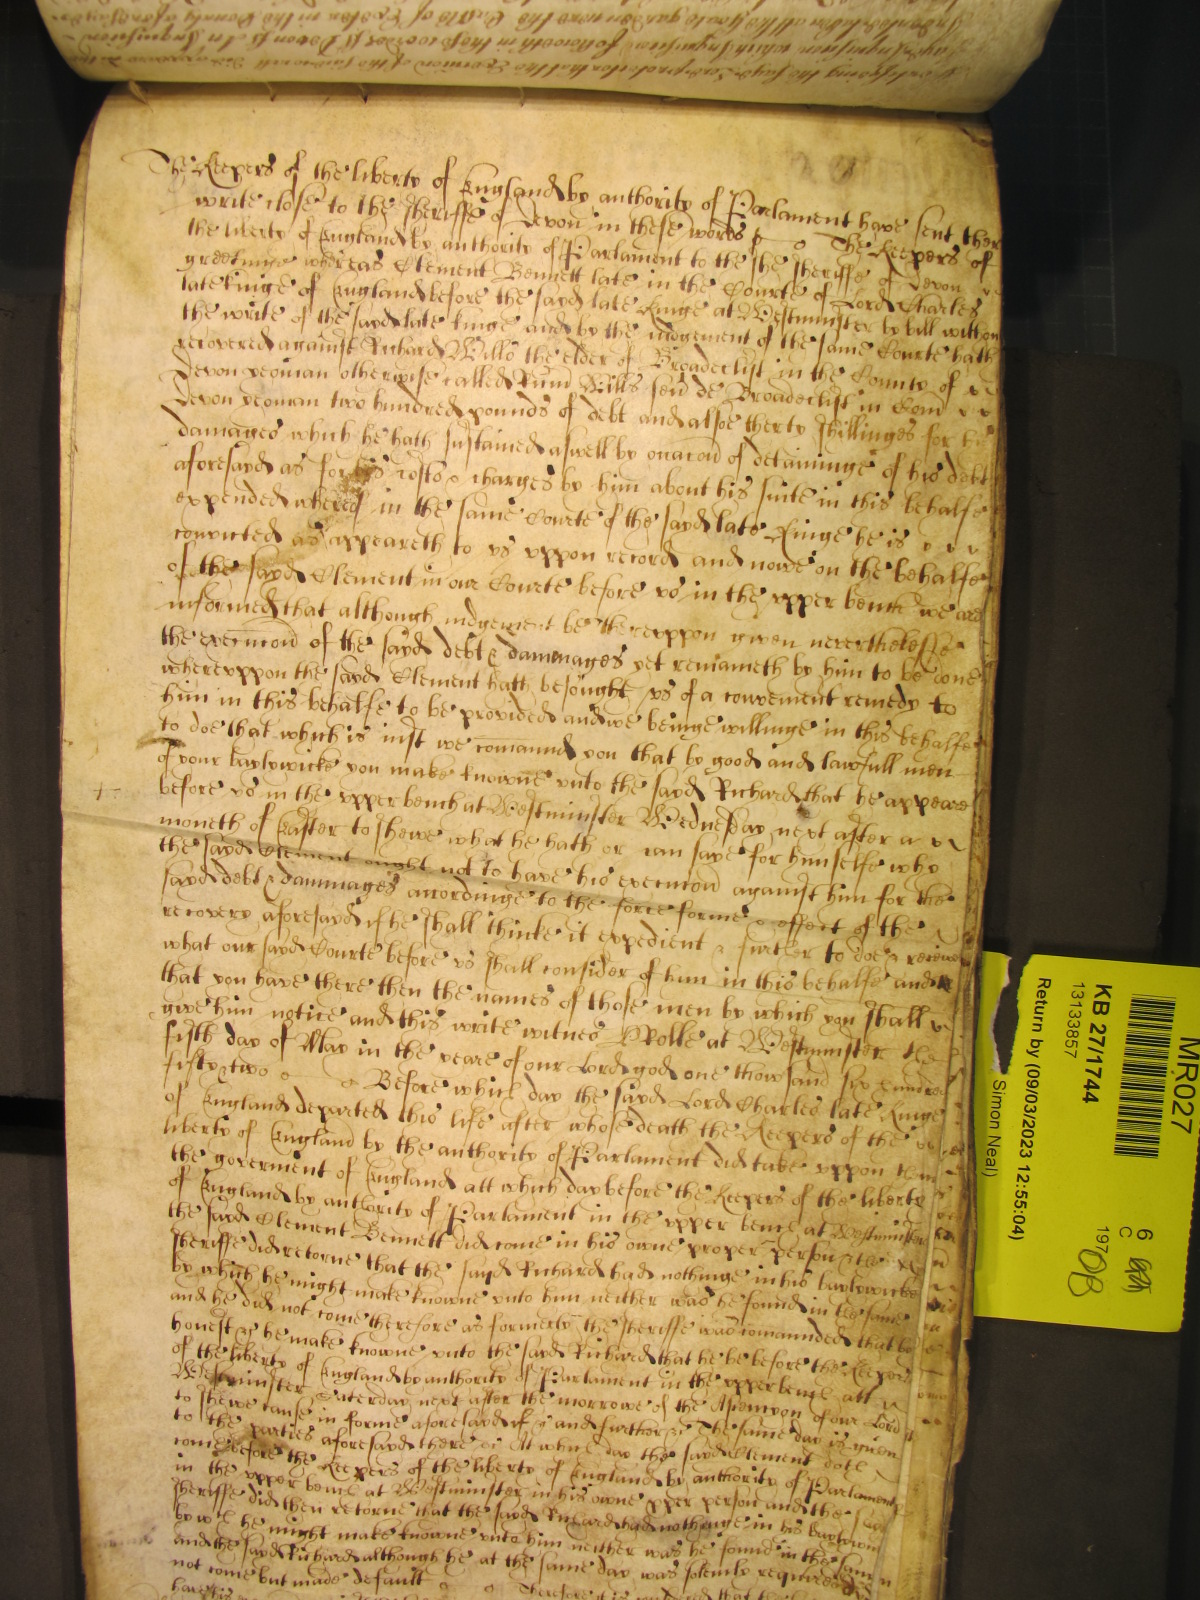 The Keepers of the liberty of England by authority of Parlament have sent their
write close to the Sheriffe of Devon in these words The Keepers of
the liberty of England by authority of Parlament to the Sheriffe of Devon
greetinge whereas Clement Bennett late in the Courte of Lord Charles
late Kinge of England before the sayd late Kinge at Westminster by bill without
the write of the sayd late kinge and by the iudgement of the same Courte hath
recovered against Richard Wills the elder of Broadeclist in the County of
Devon yeoman otherwise called Wills sen de Broadeclist in Com
Devon yeoman two hundred pounds of debt and alsoe therty shillinges for
damages which he hath sustained aswell by of detaininge of his debt
aforesayd as for his costs & charges by him about his suite in this behalfe
expended whereof in the same Courte of the sayd late Kinge he is
convicted as appeareth to vs vppon record and nowe on the behalfe
of the sayd Clement in our Courte before vs in the vpper bench we are
informed that although iudgement be therevppon given neverthelesse
the execucion of the sayd debt & dammages yet remaineth by him to be done
wherevppon the sayd Clement hath besought vs of a convenient remedy to
him in this behalfe to be provided and we beinge willinge in this behalfe
to doe that which is iust we comannd you that by good and lawfull men
of your baylywicke you make knowne vnto the sayd Richard that he appeare
before vs in the vpper bench at Westminster Wednesday next after a
moneth of Easter to shewe what he hath or can saye for himselfe why
the sayd Clement ought not to have his execucion against him for the
sayd debt & dammages accordinge to the force forme & effect of the
recovery aforesayd if he shall thinke it expedient & further to doe & receive
what our sayd Courte before vs shall consider of him in this behalfe and
that you have there then the names of those men by which you shall
give him notice and this write witnes Rolle at Westminster the
fifth day of May in the yeare of our Lord god one thowsand six hundred
fifty two Before which day the sayd Lord Charles late Kinge
of England departed this life after whose death the Keepers of the
liberty of England by the authority of Parlament did take vppon them
the goverment of England att which day before the Keepers of the liberty
of England by authority of Parlament in the vpper bench at Westminster
the sayd Clement Bennett did come in his owne proper person & the
Sheriffe did retorne that the sayd Richard had nothinge in his baylywicke
by which he might make knowne vnto him neither was he found in the same
and he did not come therefore as formerly the Sheriffe was comannded that by
honest &c he make knowne vnto the sayd Richard that he be before the Keepers
of the liberty of England by authority of Parlament in the vpper bench att
Westminster Saterday next after the morrowe of the Ascencion of our Lord
to shewe cause in forme aforesayd if &c and further &c The same day is given
to the parties aforesayd there &c At which day the sayd Clement doth
come before the Keepers of the liberty of England by authority of Parlament
in the vpper bench at Westminster in his owne pper person and the
Sheriffe did then retorne that the sayd Richard had nothinge in his baylywicke
by wch he might make knowne vnto him neither was he found in the same
and the sayd Richard although he at the same day was solemly required
not come but made default Therefore it is considered that the
MR027
KB 27/1744
13133857
Return by (09/03/2023 12:55:04)
Simon Neal)
6
C
197